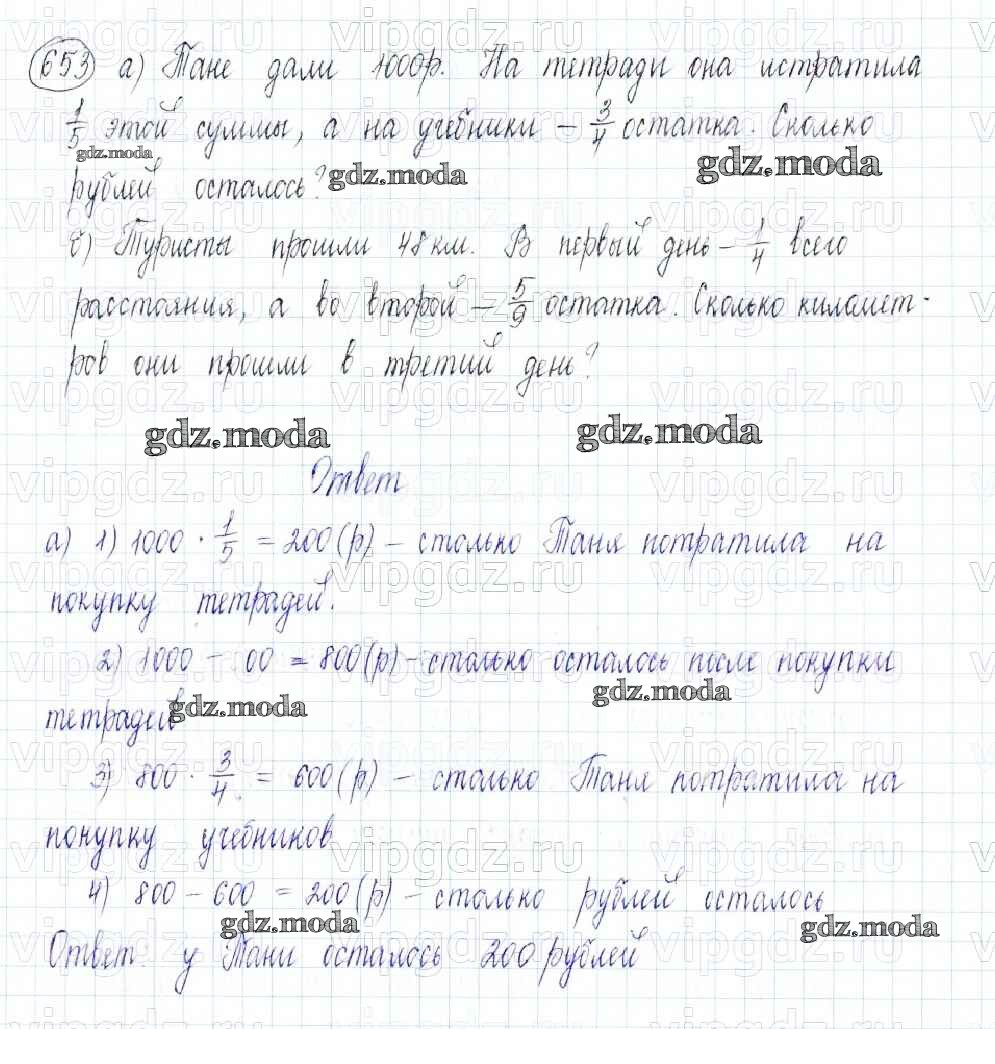 653 а) Тане дали 1000р. На тетради она истратила
1/5 этой суммы, а на учебники – 3/4 остатка. Сколько
gdz.moda
рублей осталось?
gdz.moda
gdz.moda
б) Туристы прошли 48 км. В первый день – 1/4 всего
расстояния, а во второй – 5/9 остатка. Сколько километ-
ров они прошли в третий день?
gdz.moda
gdz.moda
Ответ
а) 1) 1000 · 1/5 = 200 (р) – столько Таня потратила на
покупку тетрадей.
2) 1000 – 00 = 800 (р) – столько осталось после покупки
gdz.moda
тетрадей
gdz.moda
3) 800 · 3/4 = 600 (р) – столько Таня потратила на
покупку учебников
4) 800 – 600 = 200 (р) – столько рублей осталось
gdz.moda
gdz.moda
Ответ: у Тани осталось 200 рублей
vipgdz.ru